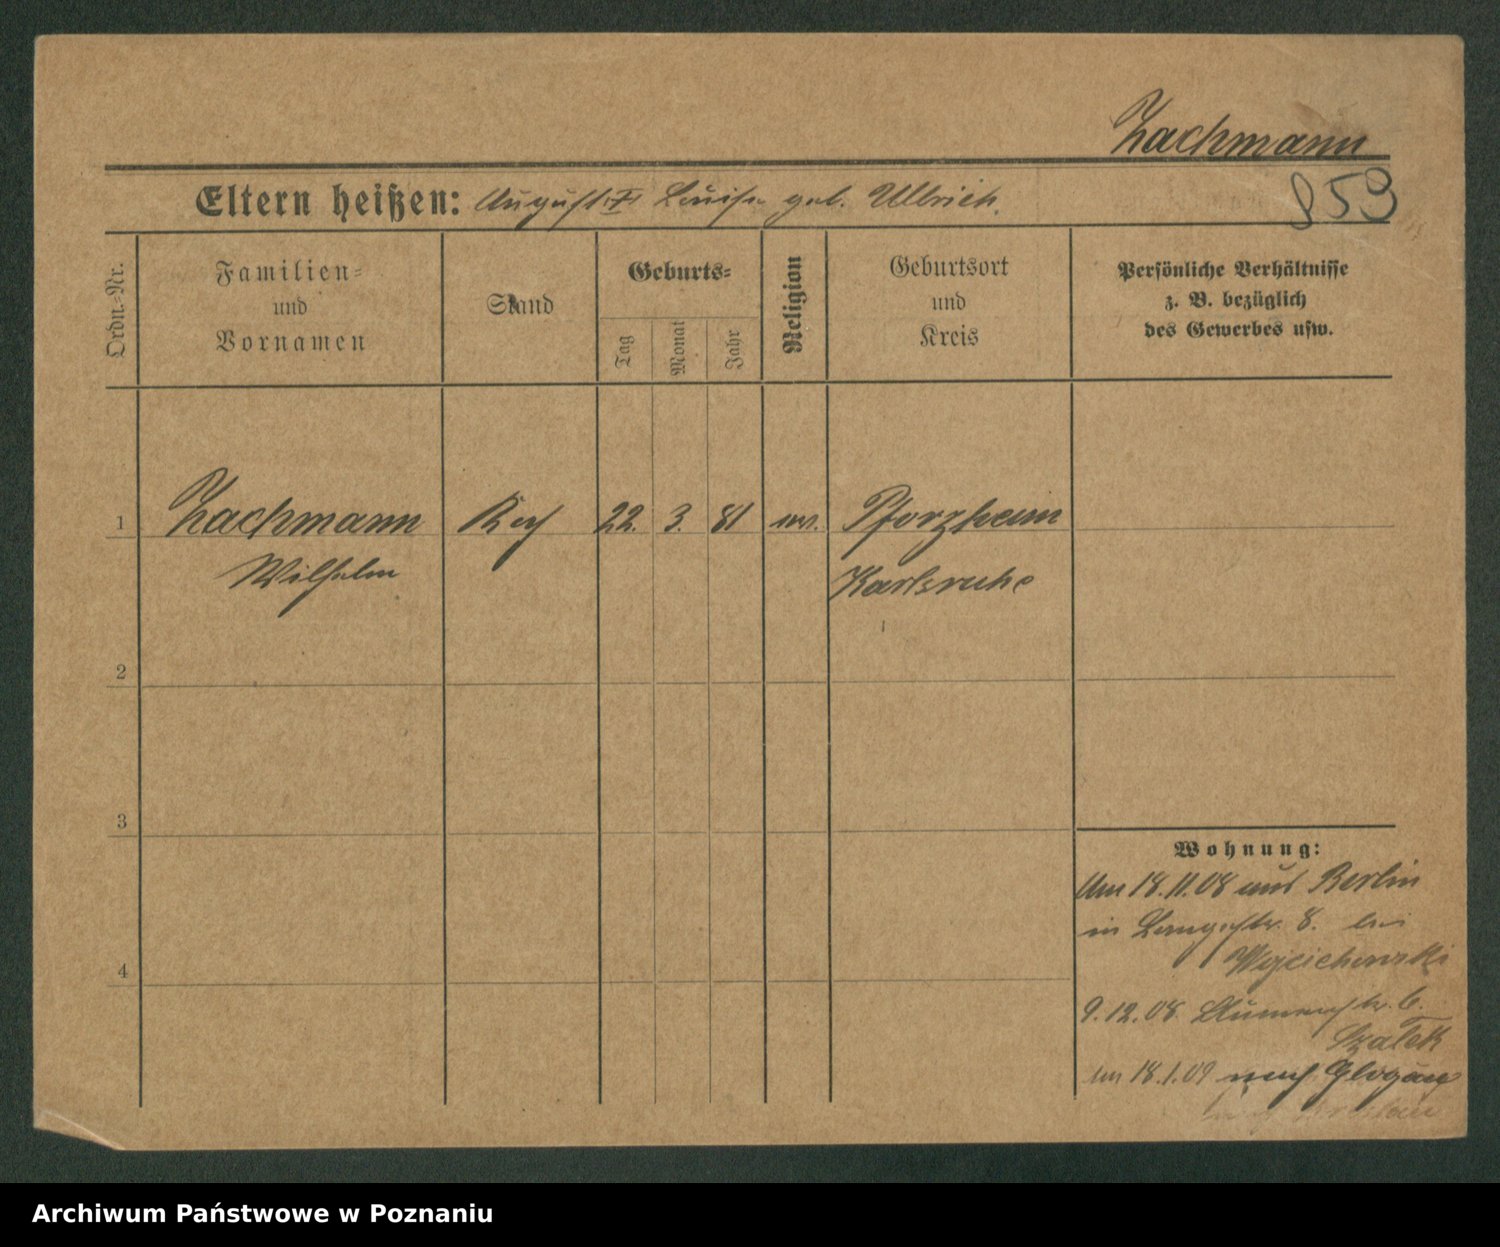 Zachmann
Eltern heißen: August u. Luise geb. Ullrich.
859
Ordn.-Nr.
Familien- und Vornamen
Stand
Geburts-
Tag
Monat
Jahr
Religion
Geburtsort und Kreis
Persönliche Verhältnisse z. B. bezüglich des Gewerbes usw.
1 Zachmann Koch 22. 3. 81 ev. Pforzheim
Wilhelm Karlsruhe
2
3
4
Wohnung:
Am 18.11.08 aus Berlin
in Langestr. 8. bei
Wojciechowski
9.12.08 Blumenstr. 6.
Szafek
am 18.1.09 nach Glogau
Archiwum Państwowe w Poznaniu